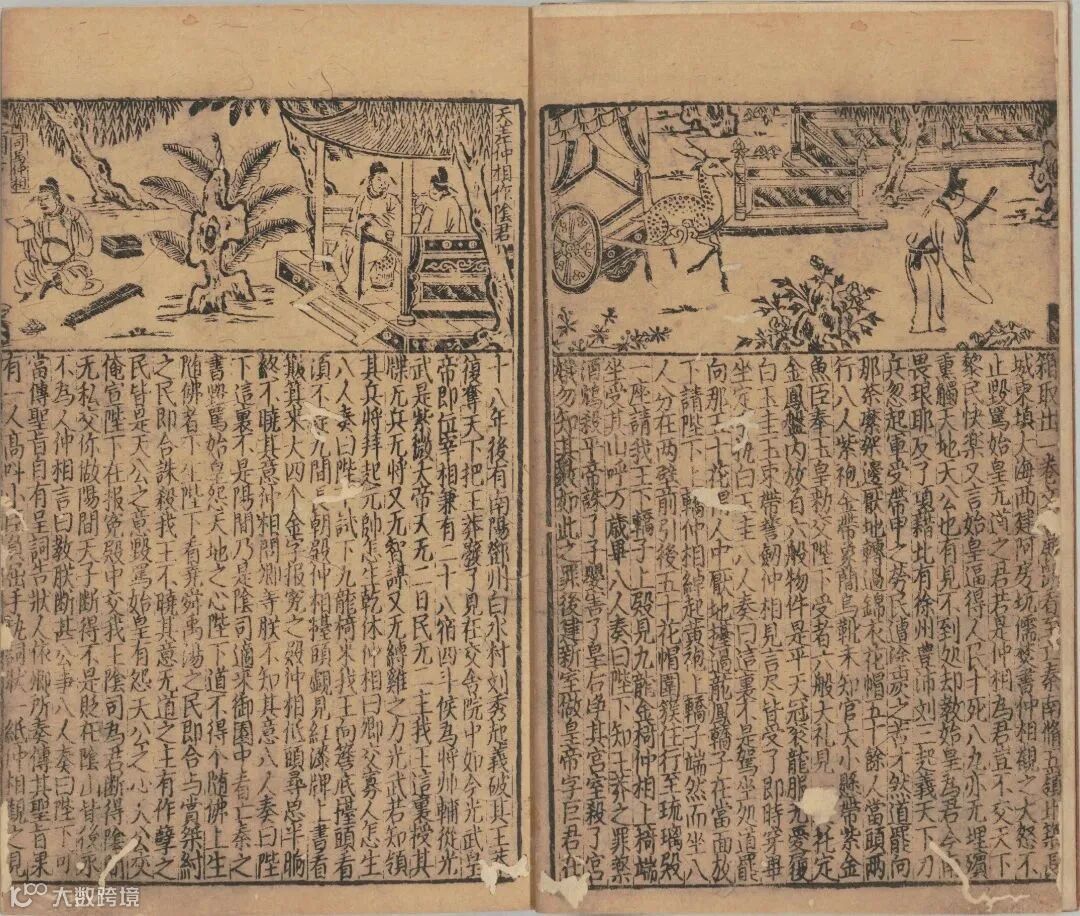 箱取出一卷文看至亡秦南脩五嶺北築長
城東填大海西建阿房坑儒焚書仲相觀之大怒不
止毀罵始皇无道之君若是仲相為君豈不交天下
黎民快樂又言始皇逼得人民十死八九亦无埋殯
重觸天地天公也有見不到処却教始皇為君今南
畏琅耶反了項籍北有徐州豐沛刘三起義天下刀
兵忽起軍受帶甲之勞民遭塗炭之苦才然道罷向
那荼䕷架邊厭地轉過錦衣花帽五十餘人當頭兩
行八人紫袍金帶象簡烏靴未知官大小縣帶紫金
魚臣奉玉皇勑交陛下受者六般大礼見托定
金鳳盤內放自六般物件是平天冠衮龍服无憂履
白玉圭玉束帶誓劒仲相見言尽皆受了即時穿畢
坐定執白玉圭八人奏曰這裏不是駕坐処道罷
向那五十花帽人中厭地擡過龍鳳轎子在當面放
下請陛下上轎仲相綽起黃袍上轎子端然而坐八
人分在兩壁前引後五十花帽圍簇住行至琉璃殿
一座請我王下轎子上殿見九龍金椅仲相上椅端
坐受其山呼万歲畢八人奏曰陛下知王莽之罪藥
酒鴆殺平帝誅了子嬰害了皇后净其宮室殺了宮
娥勿知其數即此之罪後建新室做皇帝字巨君在
天差仲相作陰君
司馬仲相
十八年後有南陽鄧州白水村刘秀起義破其王莽
復奪天下把王莽廢了見在交舍院中如今光武皇
帝即位宰相兼有二十八宿四斗候為將帥輔從光
武是紫微大帝天无二日民无一主我王這裏授其
牒无兵无將又无智謀又无縛雞之力光武若知領
其兵將拜起元帥怎生乾休仲相曰卿交寡人怎生
八人奏曰陛下試下九龍椅來我王向簷底擡頭看
項不是凡間長朝殿仲相擡頭覷見紅漆牌上書着
簸箕來大四个金字報寃之殿仲相低頭尋思半晌
終不曉其意仲相問卿寺朕不知其意八人奏曰陛
下這裏不是陽間乃是陰司適來御園中看亡秦之
書毀罵始皇怨天地之心陛下道不得个隨佛上生
隨佛者不生陛下看堯舜禹湯之民即合与賞桀紂
之民即合誅殺我王不曉其意无道之主有作孽之
民皆是天公之意毀罵始皇有怨天公之心天公交
俺宣陛下在報寃殿中交我王陰司為君断得陰間
无私交你做陽間天子断得不是貶在陰山背後永
不為人仲相言曰教朕断甚公事八人奏曰陛下可
當傳聖旨自有呈詞告狀人依卿所奏傳其聖旨果
有一人高叫小臣負屈手執詞狀一紙仲相觀之見
大数跨境